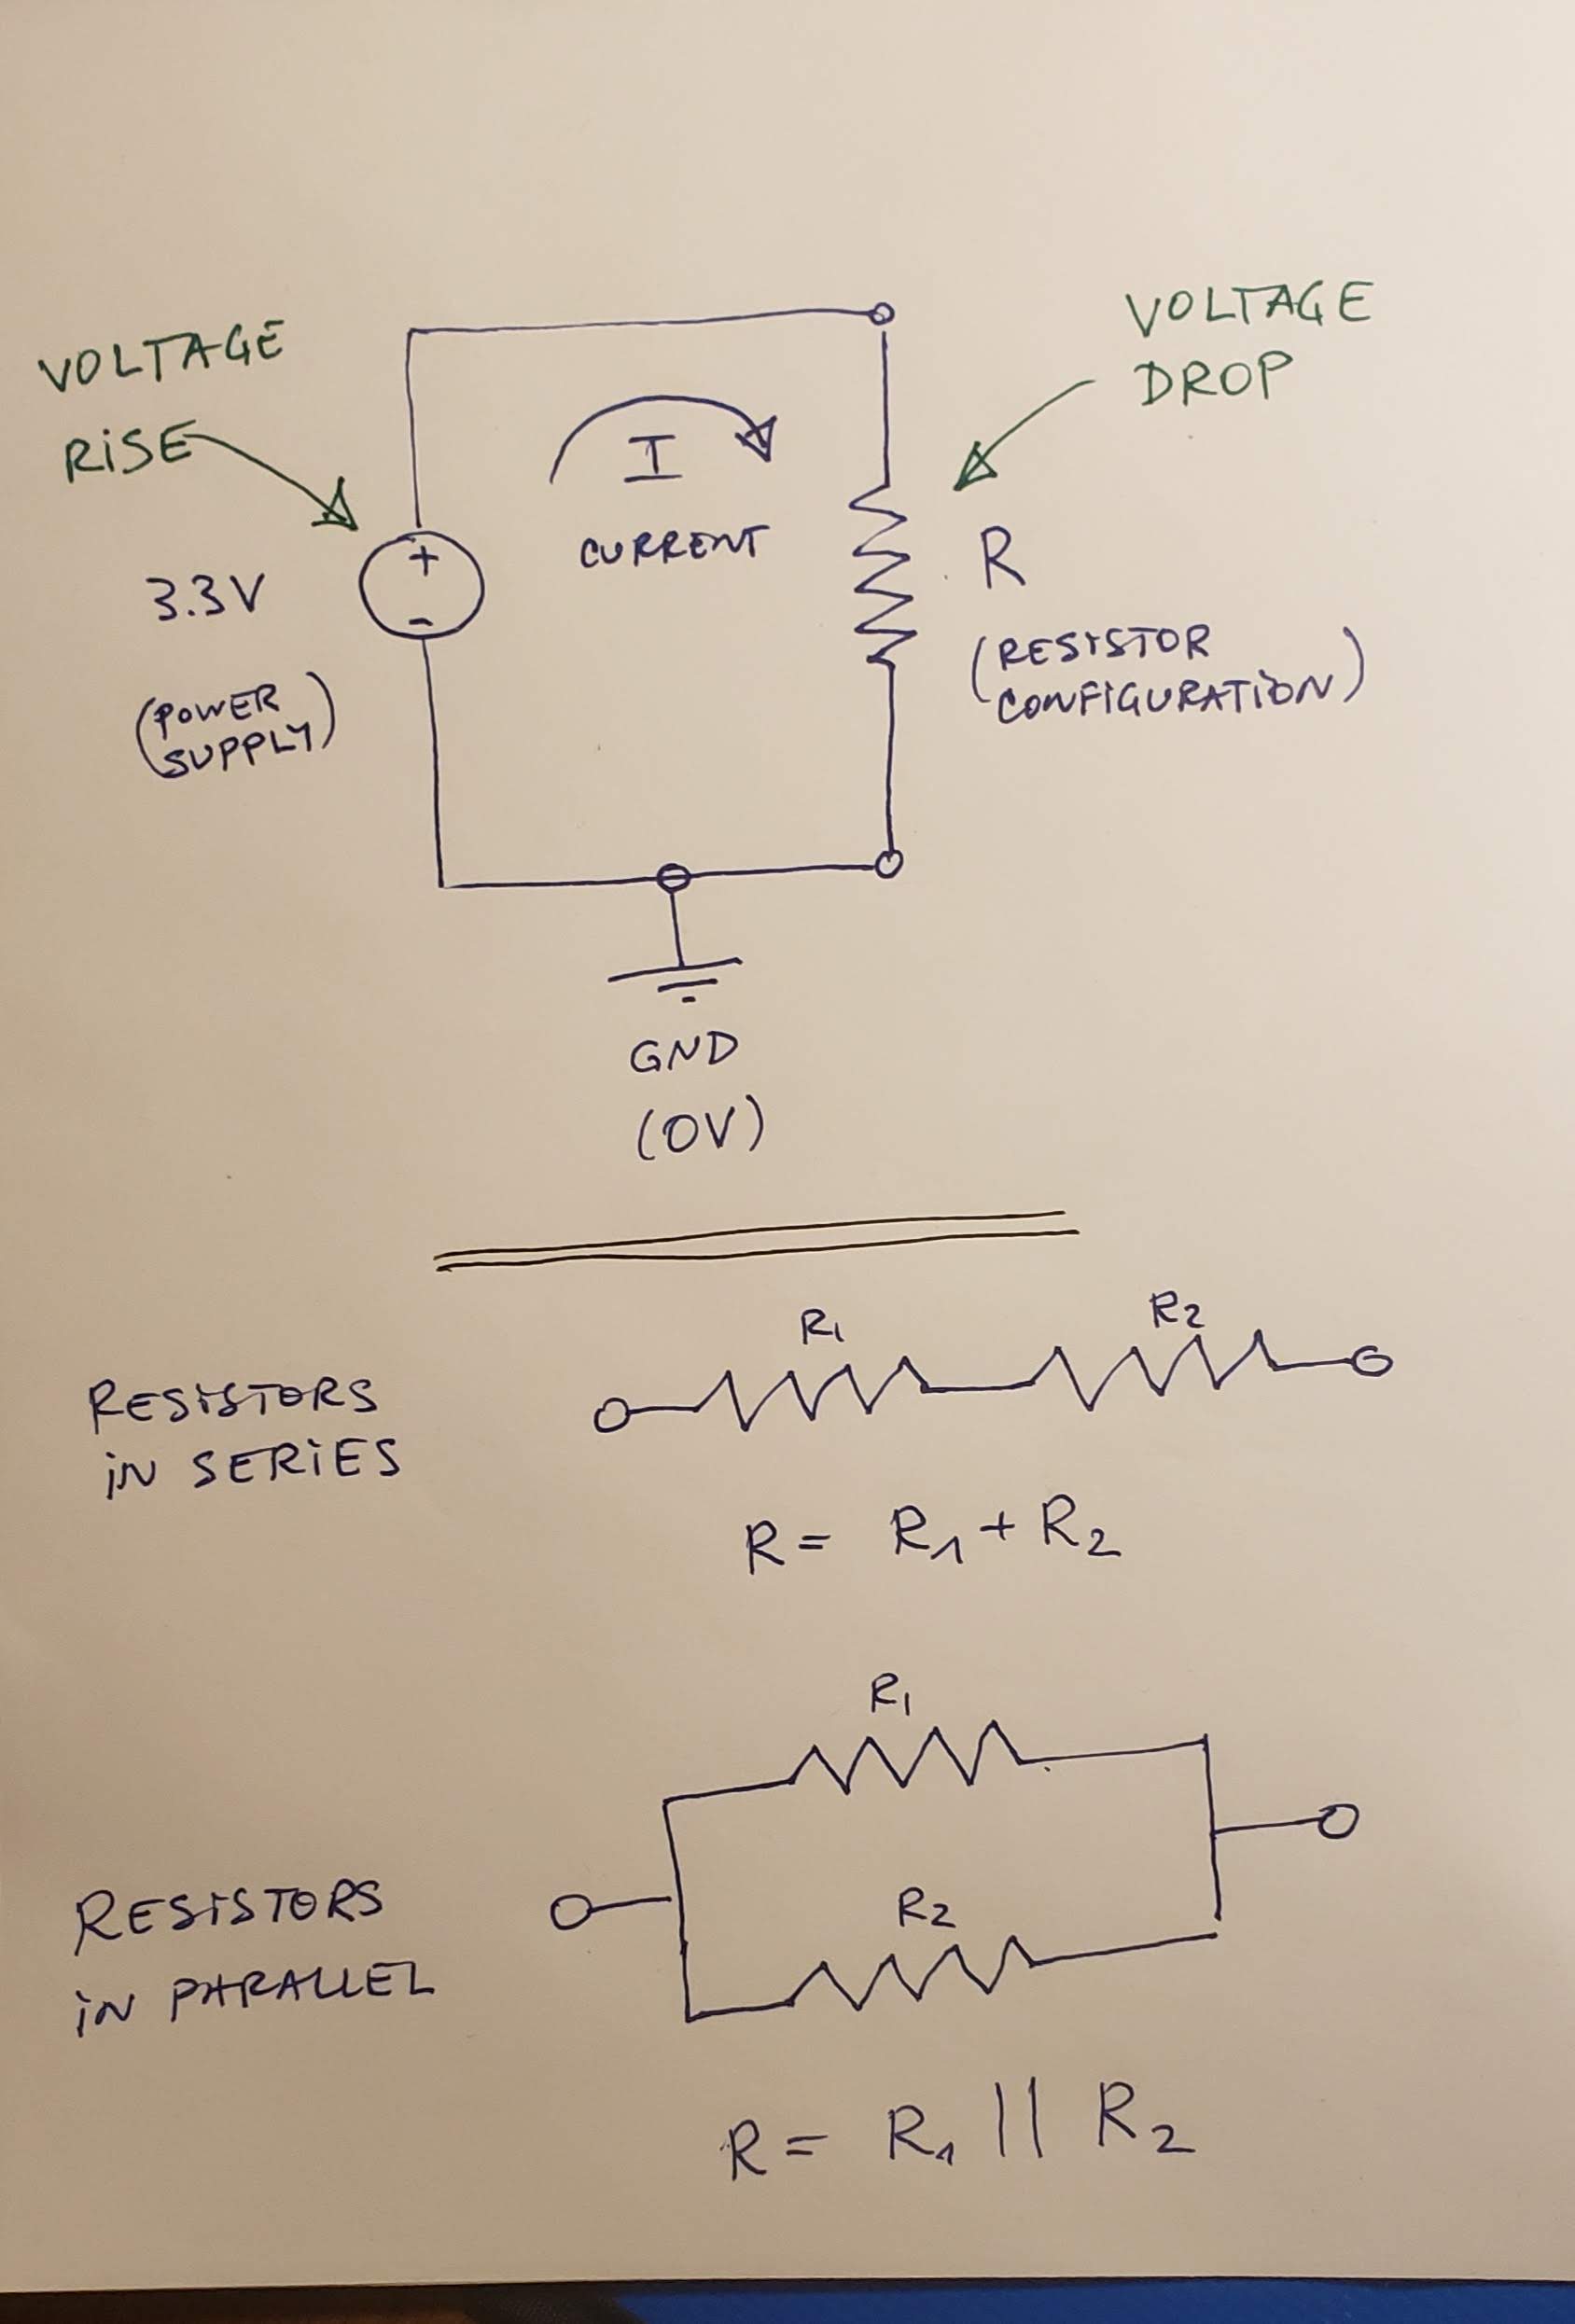 VOLTAGE
RiSE
VOLTAGE
DROP
I
CURRENT
+
-
3.3V
(POWER
SUPPLY)
R
(RESISTOR
CONFIGURATION)
GND
(0V)
R1
R2
RESISTORS
iN SERiES
R = R1 + R2
R1
R2
RESISTORS
iN PARALLEL
R = R1 || R2